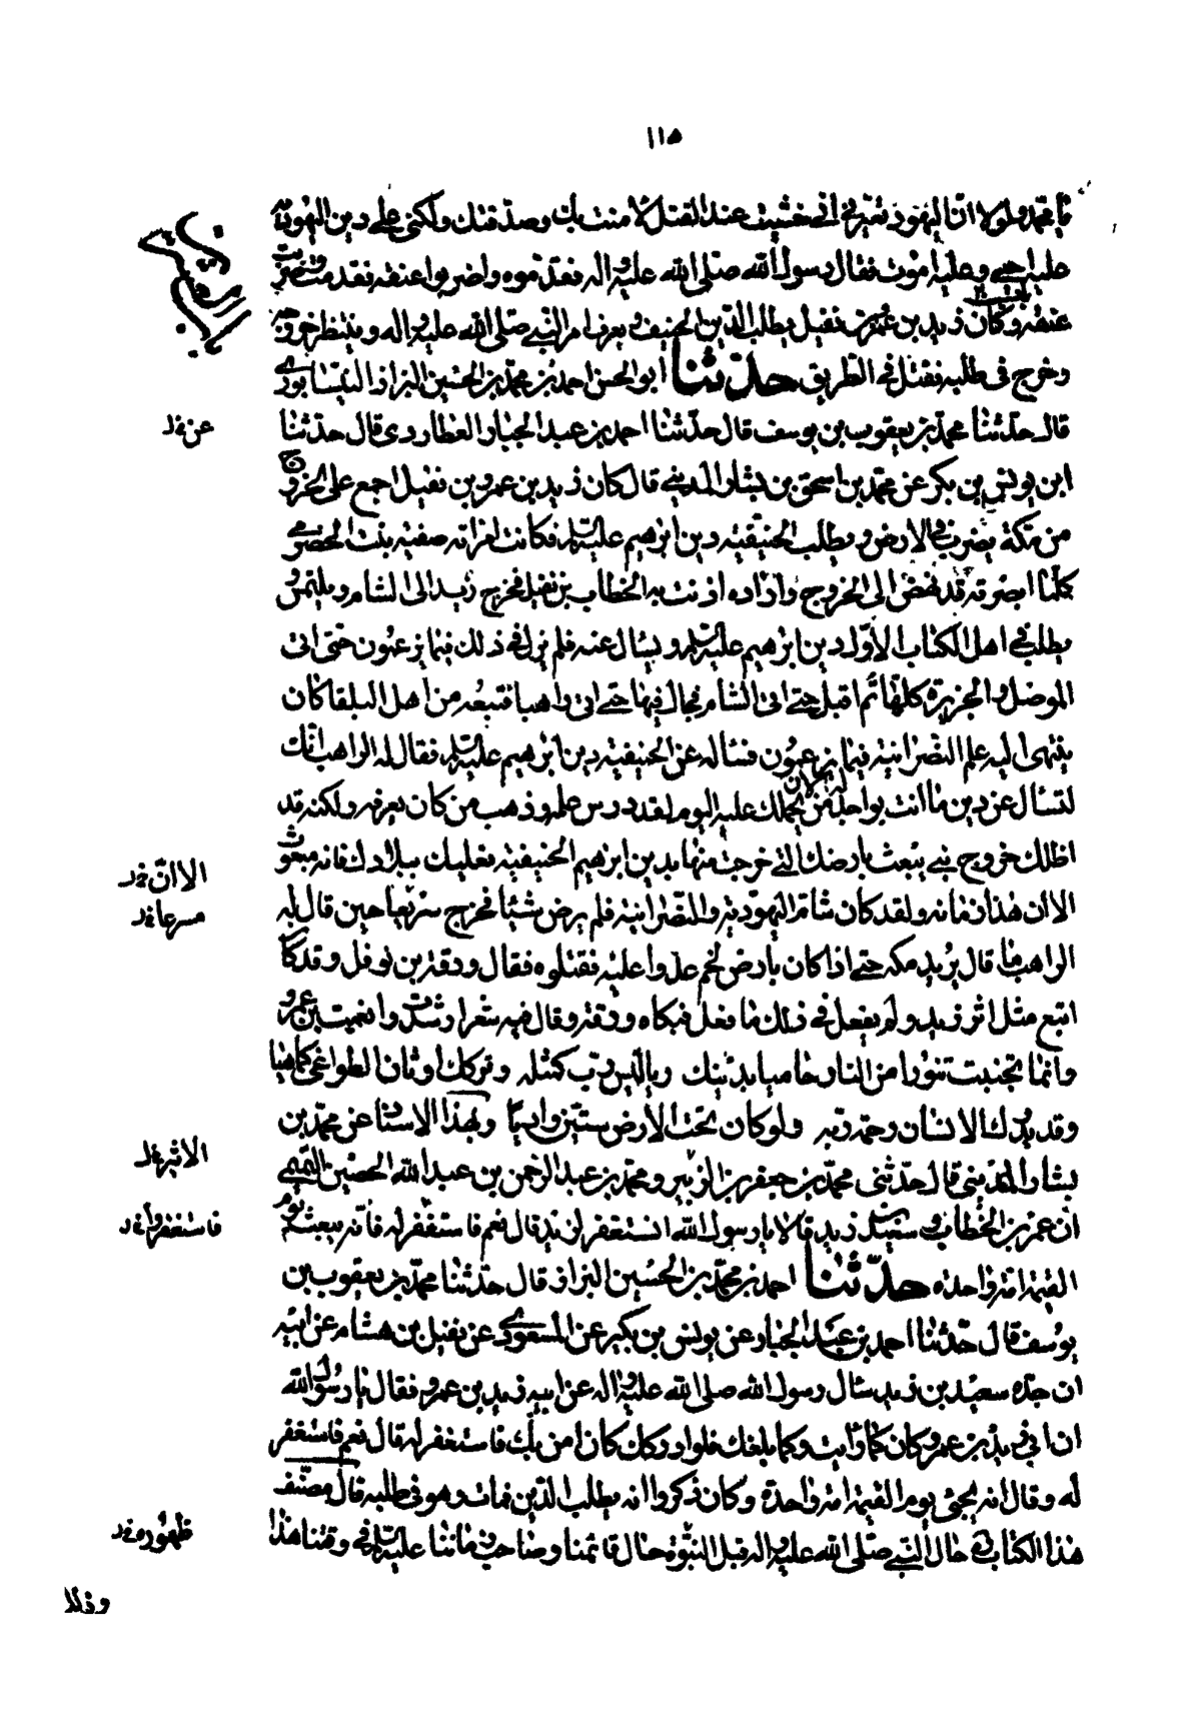 ١١٥
يا محمد ولولا ان اليهود تعيرني اني خشيت عند القتل لامنت بك وصدقتك ولكني على دين اليهودية
عليه احيى وعليه اموت فقال رسول الله صلى الله عليه واله فقدموه واضربوا عنقه فقدم وضربت
عنقه وكان زيد بن عمرو بن نفيل يطلب الدين الحنيف ويعرف امر النبي صلى الله عليه واله وينتظر خروجه
وخرج في طلبه فقتل في الطريق حدثنا ابو الحسن احمد بن محمد بن الحسين البزاز النيسابوري
قال حدثنا محمد بن يعقوب بن يوسف قال حدثنا احمد بن عبد الجبار العطاردي قال حدثنا
عن خد
ابن يونس بن بكر عن محمد بن اسحق بن يشار المديني قال كان زيد بن عمرو بن نفيل اجمع على الخروج
من مكة يضرب في الارض ويطلب الحنيفية دين ابرهيم عليه السلم فكانت امراته صفية بنت الحضرمي
كلما ابصرته قد نهض الى الخروج واراده اذنت به الخطاب بن نفيل فخرج زيد الى الشام ويلتمس و
يطلب في اهل الكتاب الاول دين ابرهيم عليه السلم ويسال عنه فلم يزل في ذلك فيما يزعمون حتى اتى
الموصل والجزيرة كلها ثم اقبل حتى اتى الشام فجال فيها حتى اتى راهبا فتبعه من اهل البلقا كان
ينتهى اليه علم النصرانية فيما يزعمون فساله عن الحنيفية دين ابرهيم عليه السلم فقال له الراهب انك
لتسال عن دين ما انت بواجد له الان من يحملك عليه اليوم لقد درس علمه وذهب من كان يعرفه ولكنه قد
اظلك خروج نبي يبعث بارضك التي خرجت منها بدين ابرهيم الحنيفية فعليك ببلادك فانه مبعوث
الا ان خد
الاان هذا زمانه ولقد كان شام اليهودية والنصرانية فلم يرض شيئا فخرج سريعا حين قال له
مسرعا خد
الراهب ما قال يريد مكه حتى اذا كان بارض لخم عدوا عليه فقتلوه فقال ورقة بن نوفل وقد كان
اتبع مثل اثر زيد ولم يفعل في ذلك ما فعل فبكاه ورقة وقال فيه شعرا رشدت وانعمت بن عمرو
وانما تجنبت تنورا من النار حاميا بدينك ربا ليس رب كمثله وتركك اوثان الطواغي كما هيا
وقد يدرك الانسان رحمة ربه ولو كان تحت الارض ستين واديا وبهذا الاسناد عن محمد بن
يشار المديني قال حدثني محمد بن جعفر بن الزبير ومحمد بن عبد الرحمن بن عبد الله الحصين التميمي
ان عمر بن الخطاب وسعيد بن زيد قالا يا رسول الله انستغفر لزيد قال نعم فاستغفر له فانه يبعث يوم
فاستغفروا خد
القيمة امة واحدة حدثنا احمد بن محمد بن الحسين البزاز قال حدثنا محمد بن يعقوب بن
يوسف قال حدثنا احمد بن عبد الجبار عن يونس بن بكير عن المسعودي عن نفيل بن هشام عن ابيه
ان جده سعيد بن زيد سال رسول الله صلى الله عليه واله عن ابيه زيد بن عمرو فقال يا رسول الله
ان ابي زيد بن عمرو كان كما رايت وكما بلغك فلو ادركك كان امن بك فاستغفر له قال نعم فاستغفر
له وقال انه يجئ يوم القيمة امة واحدة وكان ذكروا انه يطلب الدين فمات وهو في طلبه قال مصنف
هذا الكتاب في حال النبي صلى الله عليه واله قبل النبوة حال قائمنا وصاحب زماننا عليه السلم في وقتنا هذا
ظهوره خد
وذلك